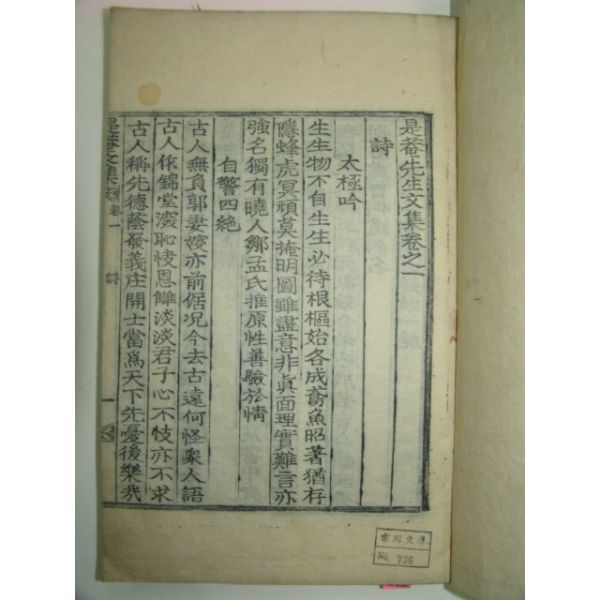 是菴先生文集卷之一
詩
太極吟
生生物不自生生必待根樞始各成鳶魚昭著猶存
隱蜂虎冥頑莫掩明圖雖盡意非眞面理實難言亦
強名獨有曉人鄒孟氏推原性善驗於情
自警四絶
古人無負郭妻嫂亦前倨况今去古遠何怪衆人語
古人依錦堂深恥快恩讎淡淡君子心不忮亦不求
古人稱先德蔭發義庄開士當爲天下先憂後樂哉
是菴文集 卷一 詩 一
No. 736